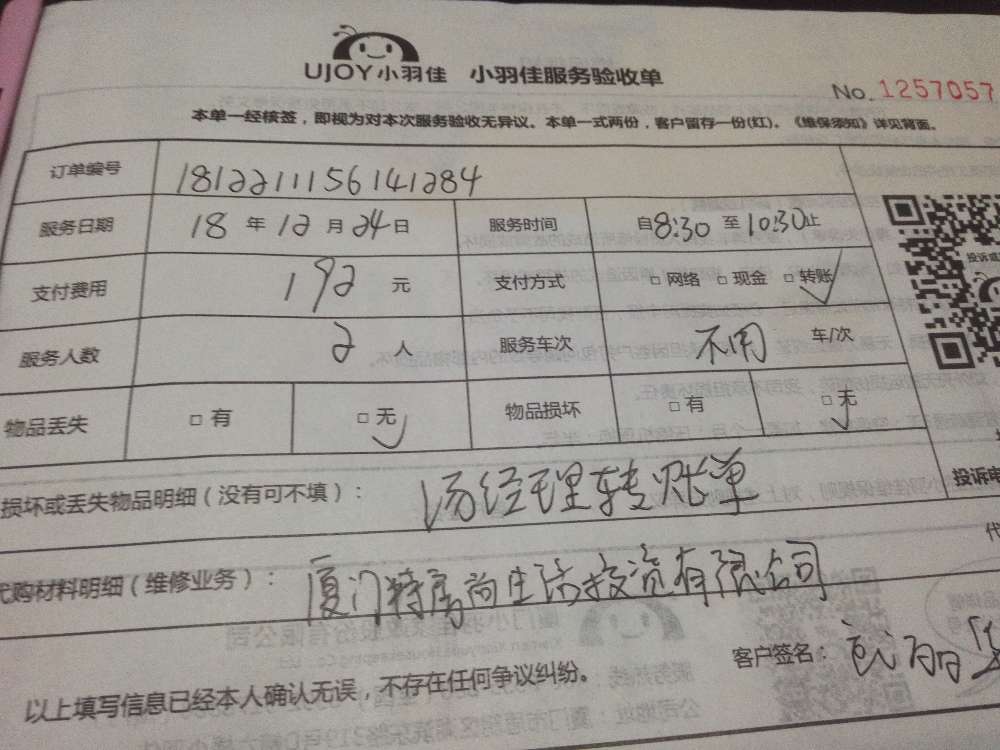 UJOY小羽佳 小羽佳服务验收单
No. 1257057
本单一经核签，即视为对本次服务验收无异议。本单一式两份，客户留存一份(红)。《维保须知》详见背面。
订单编号 1812211156141284
服务日期 18 年 12 月 24 日 服务时间 自 8:30 至 10:30 止
支付费用 192 元 支付方式 □ 网络 □ 现金 □ 转账
服务人数 2 人 服务车次 不用 车/次
物品丢失 □ 有 □ 无 物品损坏 □ 有 □ 无
损坏或丢失物品明细（没有可不填）： 汤经理转账单
投诉电
代购材料明细（维修业务）： 厦门特房尚生活投资有限公司
代
客户签名：
以上填写信息已经本人确认无误，不存在任何争议纠纷。